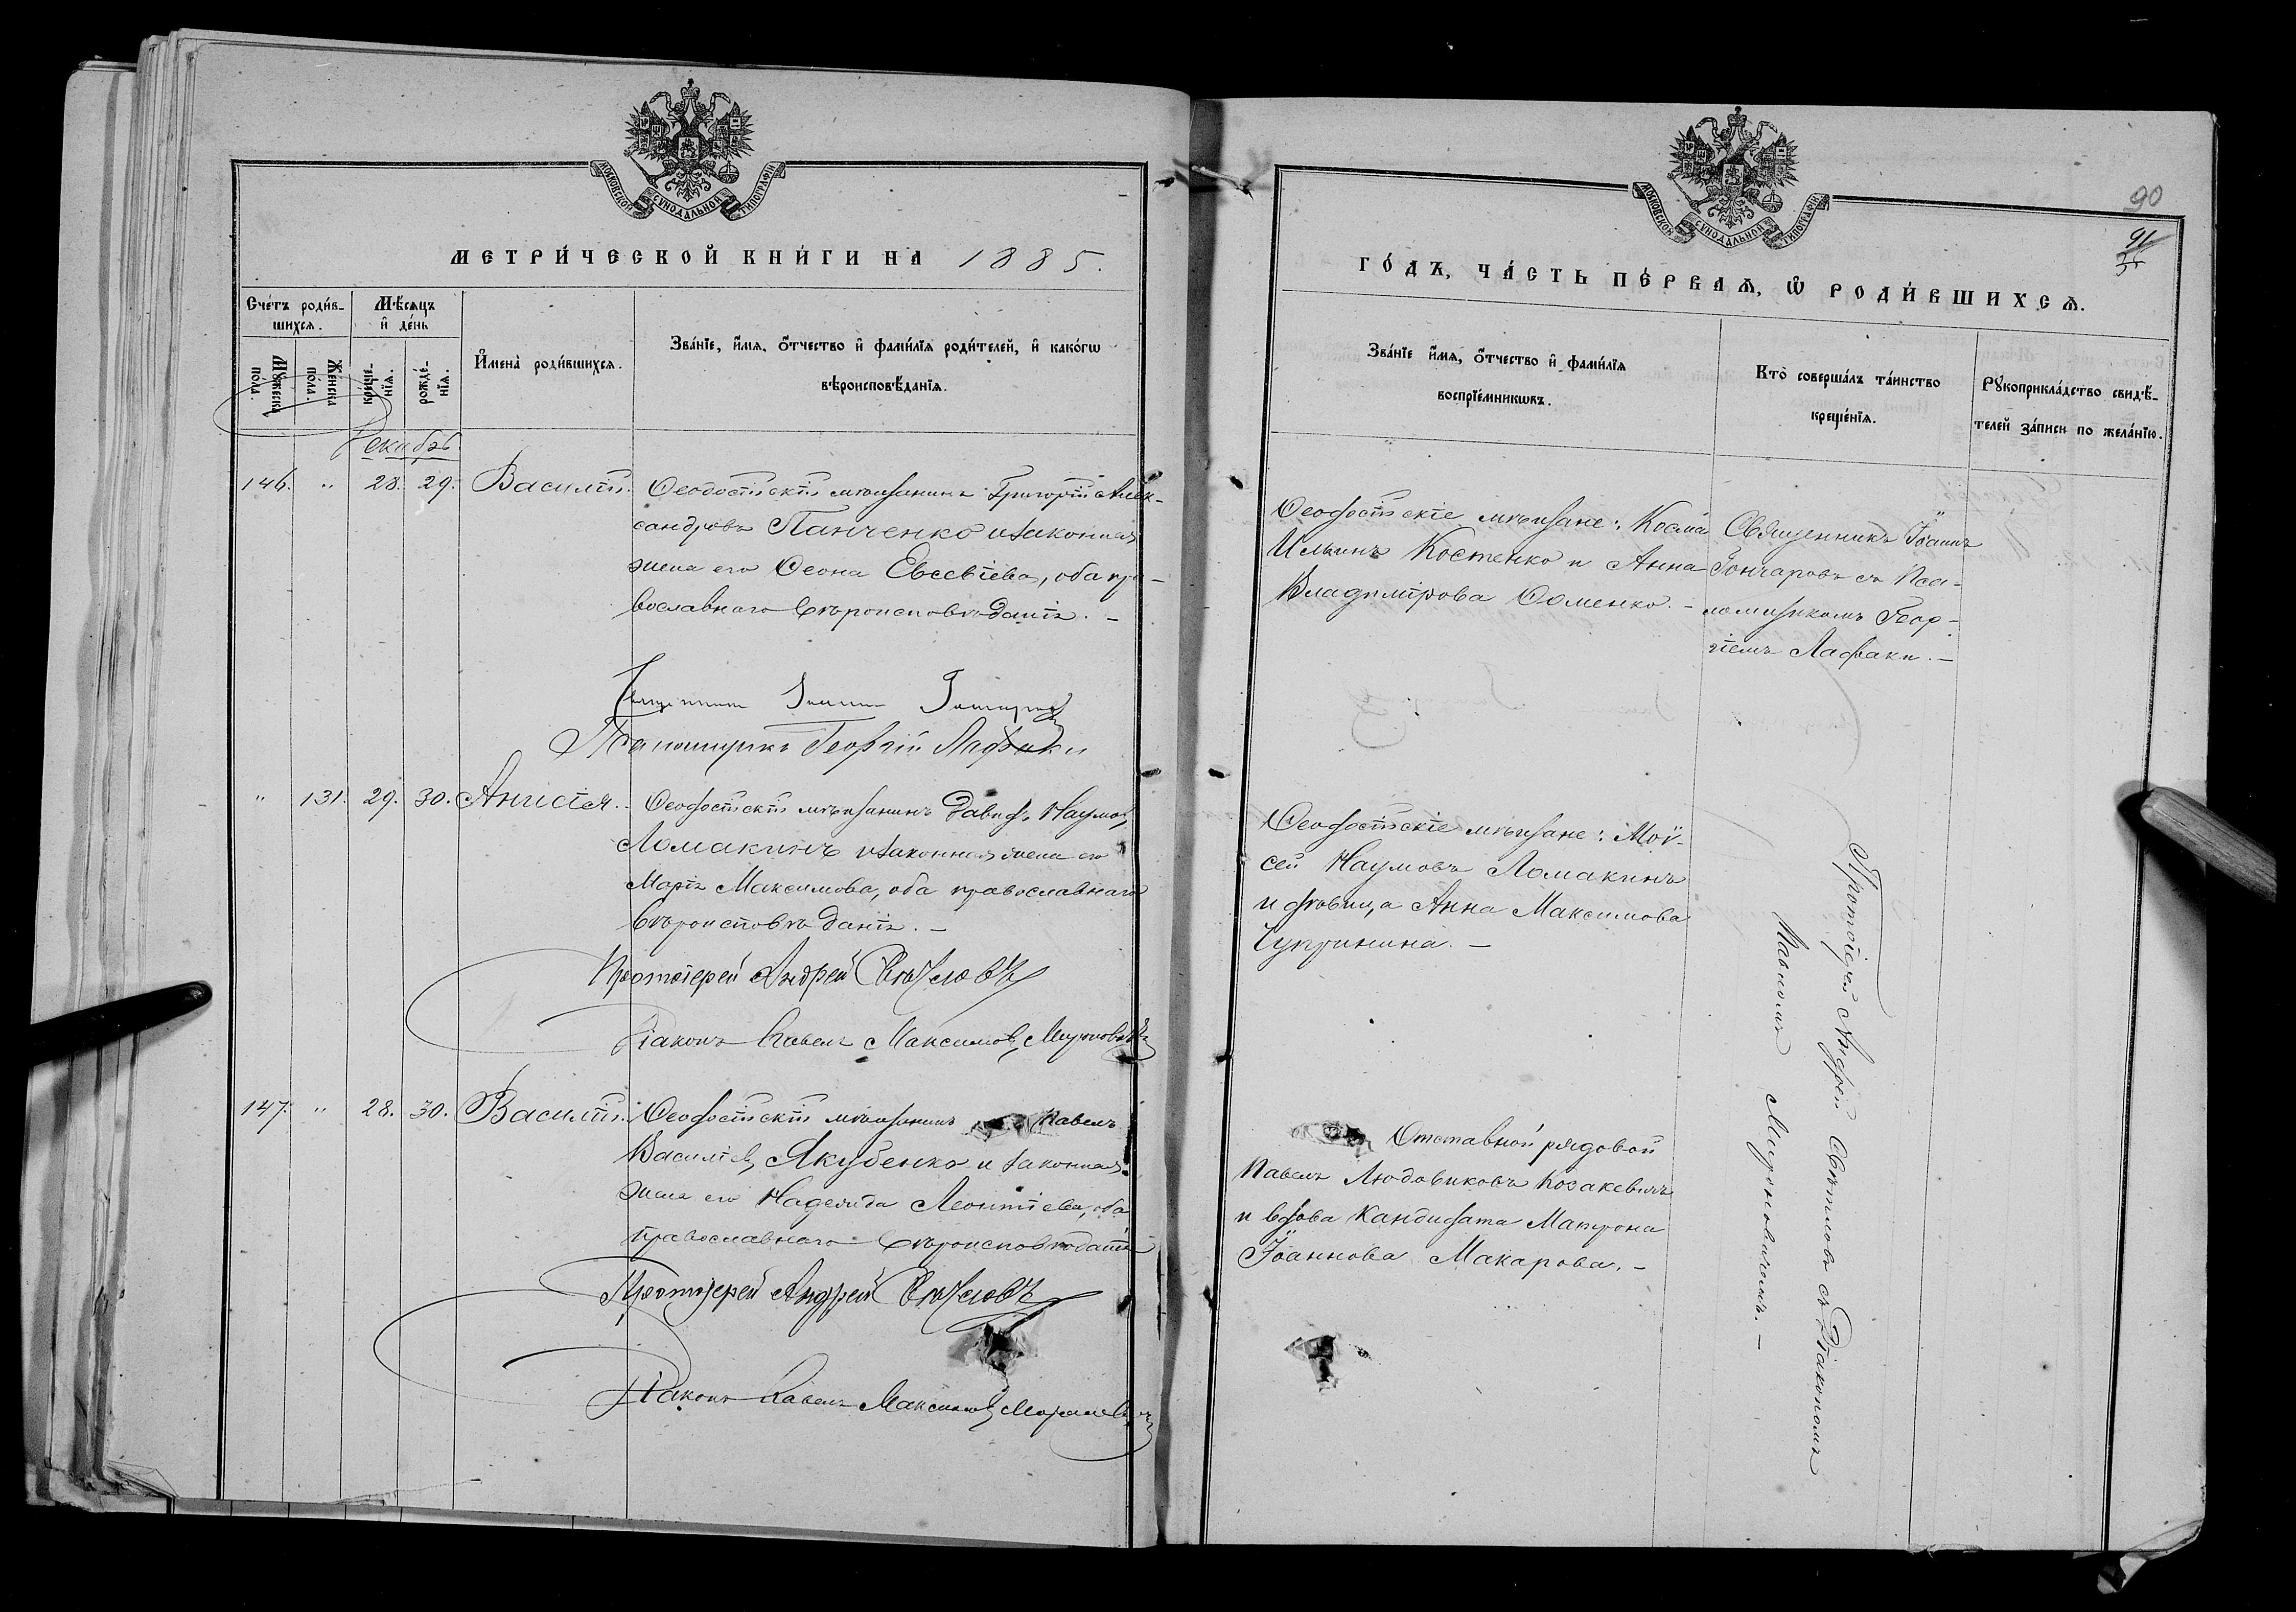 МОСКОВСКОЙ СУНОДАЛЬНОЙ ТИПОГРАФІИ
МЕТРИ́ЧЕСКОЙ КНИ́ГИ НА 1885.
Сче́тъ роди́в-
шихся.
Мѣ́сяцъ
и҆ де́нь
Му́жеска
пола̀.
Же́нска
пола̀.
креще́-
нїя.
рожде́-
нїя.
И҆мена̀ роди́вшихся.
Зва́нїе, и҆́мя, ѻ҆́тчество и҆ фами́лїя роди́телей, и҆ како́гѡ
вѣроисповѣ́данїя.
Декабрь
146. " 28. 29. Василій.
Ѳеодосійскій мѣщанинъ Григорій Алек-
сандровъ Панченко и законная
жена его Ѳеона Евсевіева, оба пра-
вославнаго вѣроисповѣданія. –
Священникъ Іоаннъ Гончаровъ
Псаломщикъ Георгій Лафаки
" 131. 29. 30. Анисія.
Ѳеодосійскій мѣщанинъ Давидъ Наумовъ
Ломакинъ и законная жена его
Марія Максимова, оба православнаго
вѣроисповѣданія. –
Протоіерей Андрей Свѣтловъ
Діаконъ Павелъ Максимовъ Мироновичъ
147. " 28. 30. Василій.
Ѳеодосійскій мѣщанинъ Павелъ
Василіевъ Якубенко и законная
жена его Надежда Леонтіева, оба
православнаго вѣроисповѣданія
Протоіерей Андрей Свѣтловъ
Діаконъ Павелъ Максимовъ Мироновичъ
МОСКОВСКОЙ СУНОДАЛЬНОЙ ТИПОГРАФІИ
90
91
ГО́ДЪ, ЧА́СТЬ ПЕ́РВАѦ, Ѡ҆ РОДИ́ВШИХСѦ.
Зва́нїе и҆́мя, ѻ҆́тчество и҆ фами́лїя
воспрїе́мникѡвъ.
Кто̀ соверша́лъ та́инство
креще́нїя.
Рꙋкоприкла́дство свидѣ́-
телей за́писи по жела́нїю.
Ѳеодосійскіе мѣщане: Косма
Ильинъ Костенко и Анна
Владимірова Ѳоменко. –
Священникъ Іоаннъ
Гончаровъ съ Пса-
ломщикомъ Геор-
гіемъ Лафаки. –
Ѳеодосійскіе мѣщане: Мои-
сей Наумовъ Ломакинъ
и дѣвица Анна Максимова
Чупринина. –
Протоіерей Андрей Свѣтловъ съ Діакономъ
Павломъ Мироновичемъ. –
Отставной рядовой
Павелъ Людовиковъ Козакевичъ
и вдова Кандидата Матрона
Іоаннова Макарова. –